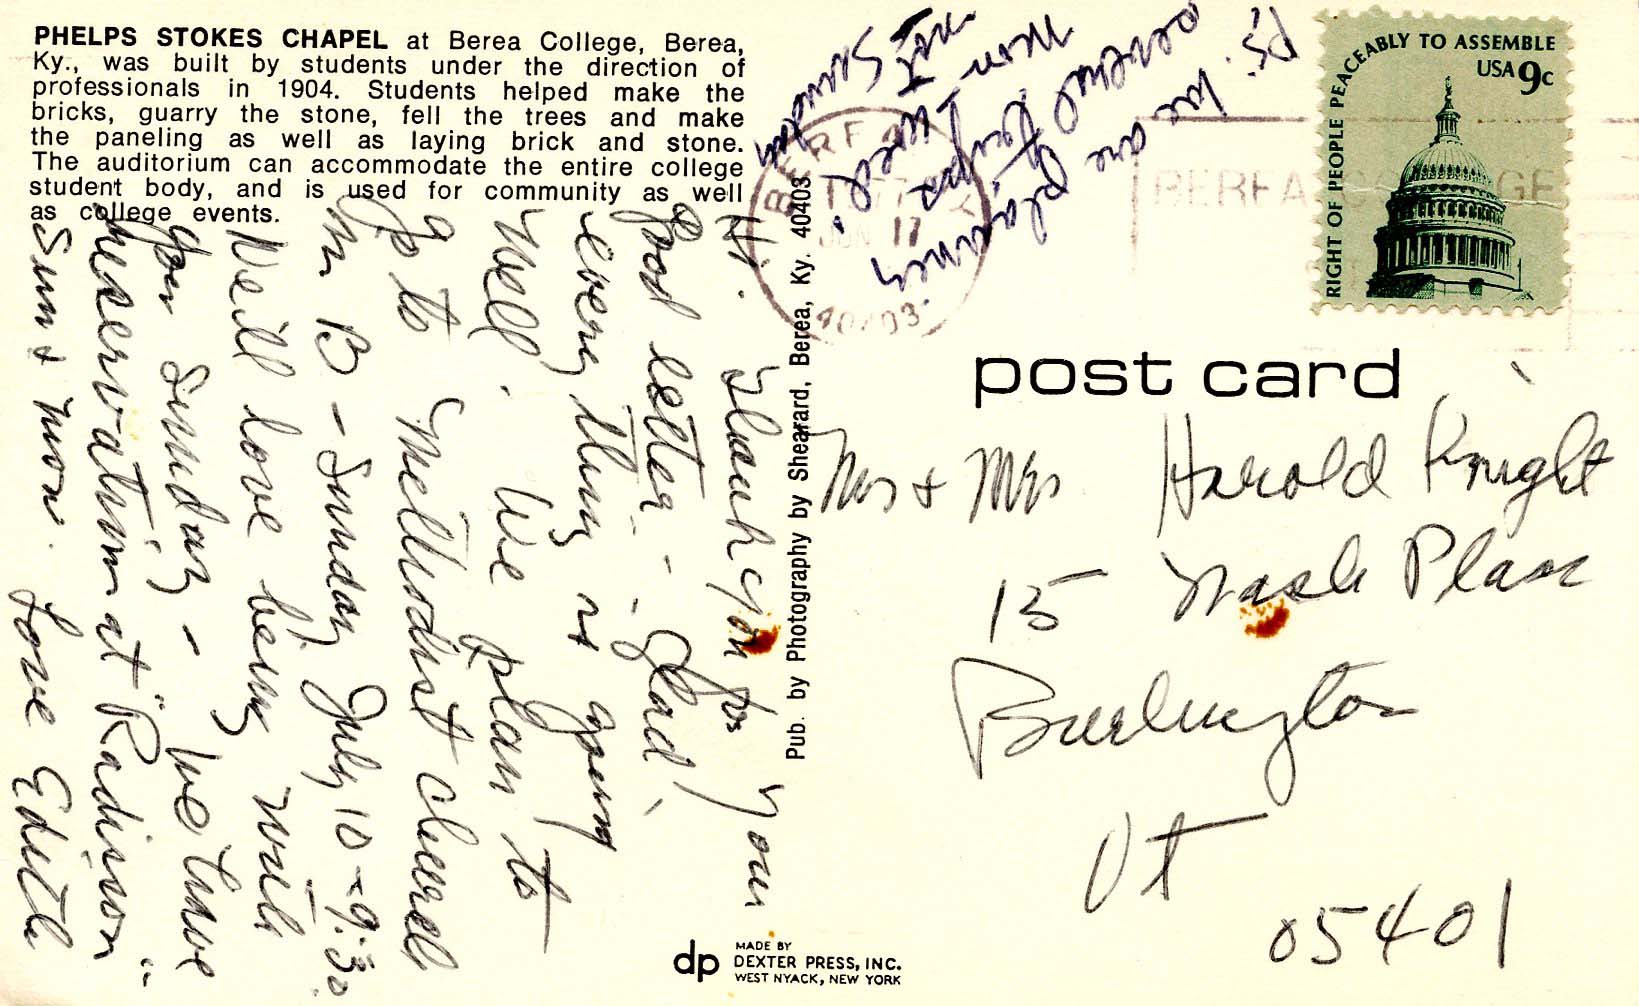 PHELPS STOKES CHAPEL at Berea College, Berea,
Ky., was built by students under the direction of
professionals in 1904. Students helped make the
bricks, guarry the stone, fell the trees and make
the paneling as well as laying brick and stone.
The auditorium can accommodate the entire college
student body, and is used for community as well
as college events.
Hi. Thank you for your
good letter - - Glad
every thing is going
well. We plan to
go to Methodist church
in B - Sunday July 10 - 9:30
We'll love being with
you Sunday - We have
reservation at "Radisson"
Sun & Mon. Love Edith
P.S. We are planning
several trips
Mon I will
not
Pub. by Photography by Shearard, Berea, Ky. 40403
BEREA
JUN 17
40403
BEREA COLLEGE
RIGHT OF PEOPLE PEACEABLY TO ASSEMBLE
USA 9c
post card
Mr & Mrs Harold Knight
15 Nash Place
Burlington
Vt
05401
dp
MADE BY
DEXTER PRESS, INC.
WEST NYACK, NEW YORK